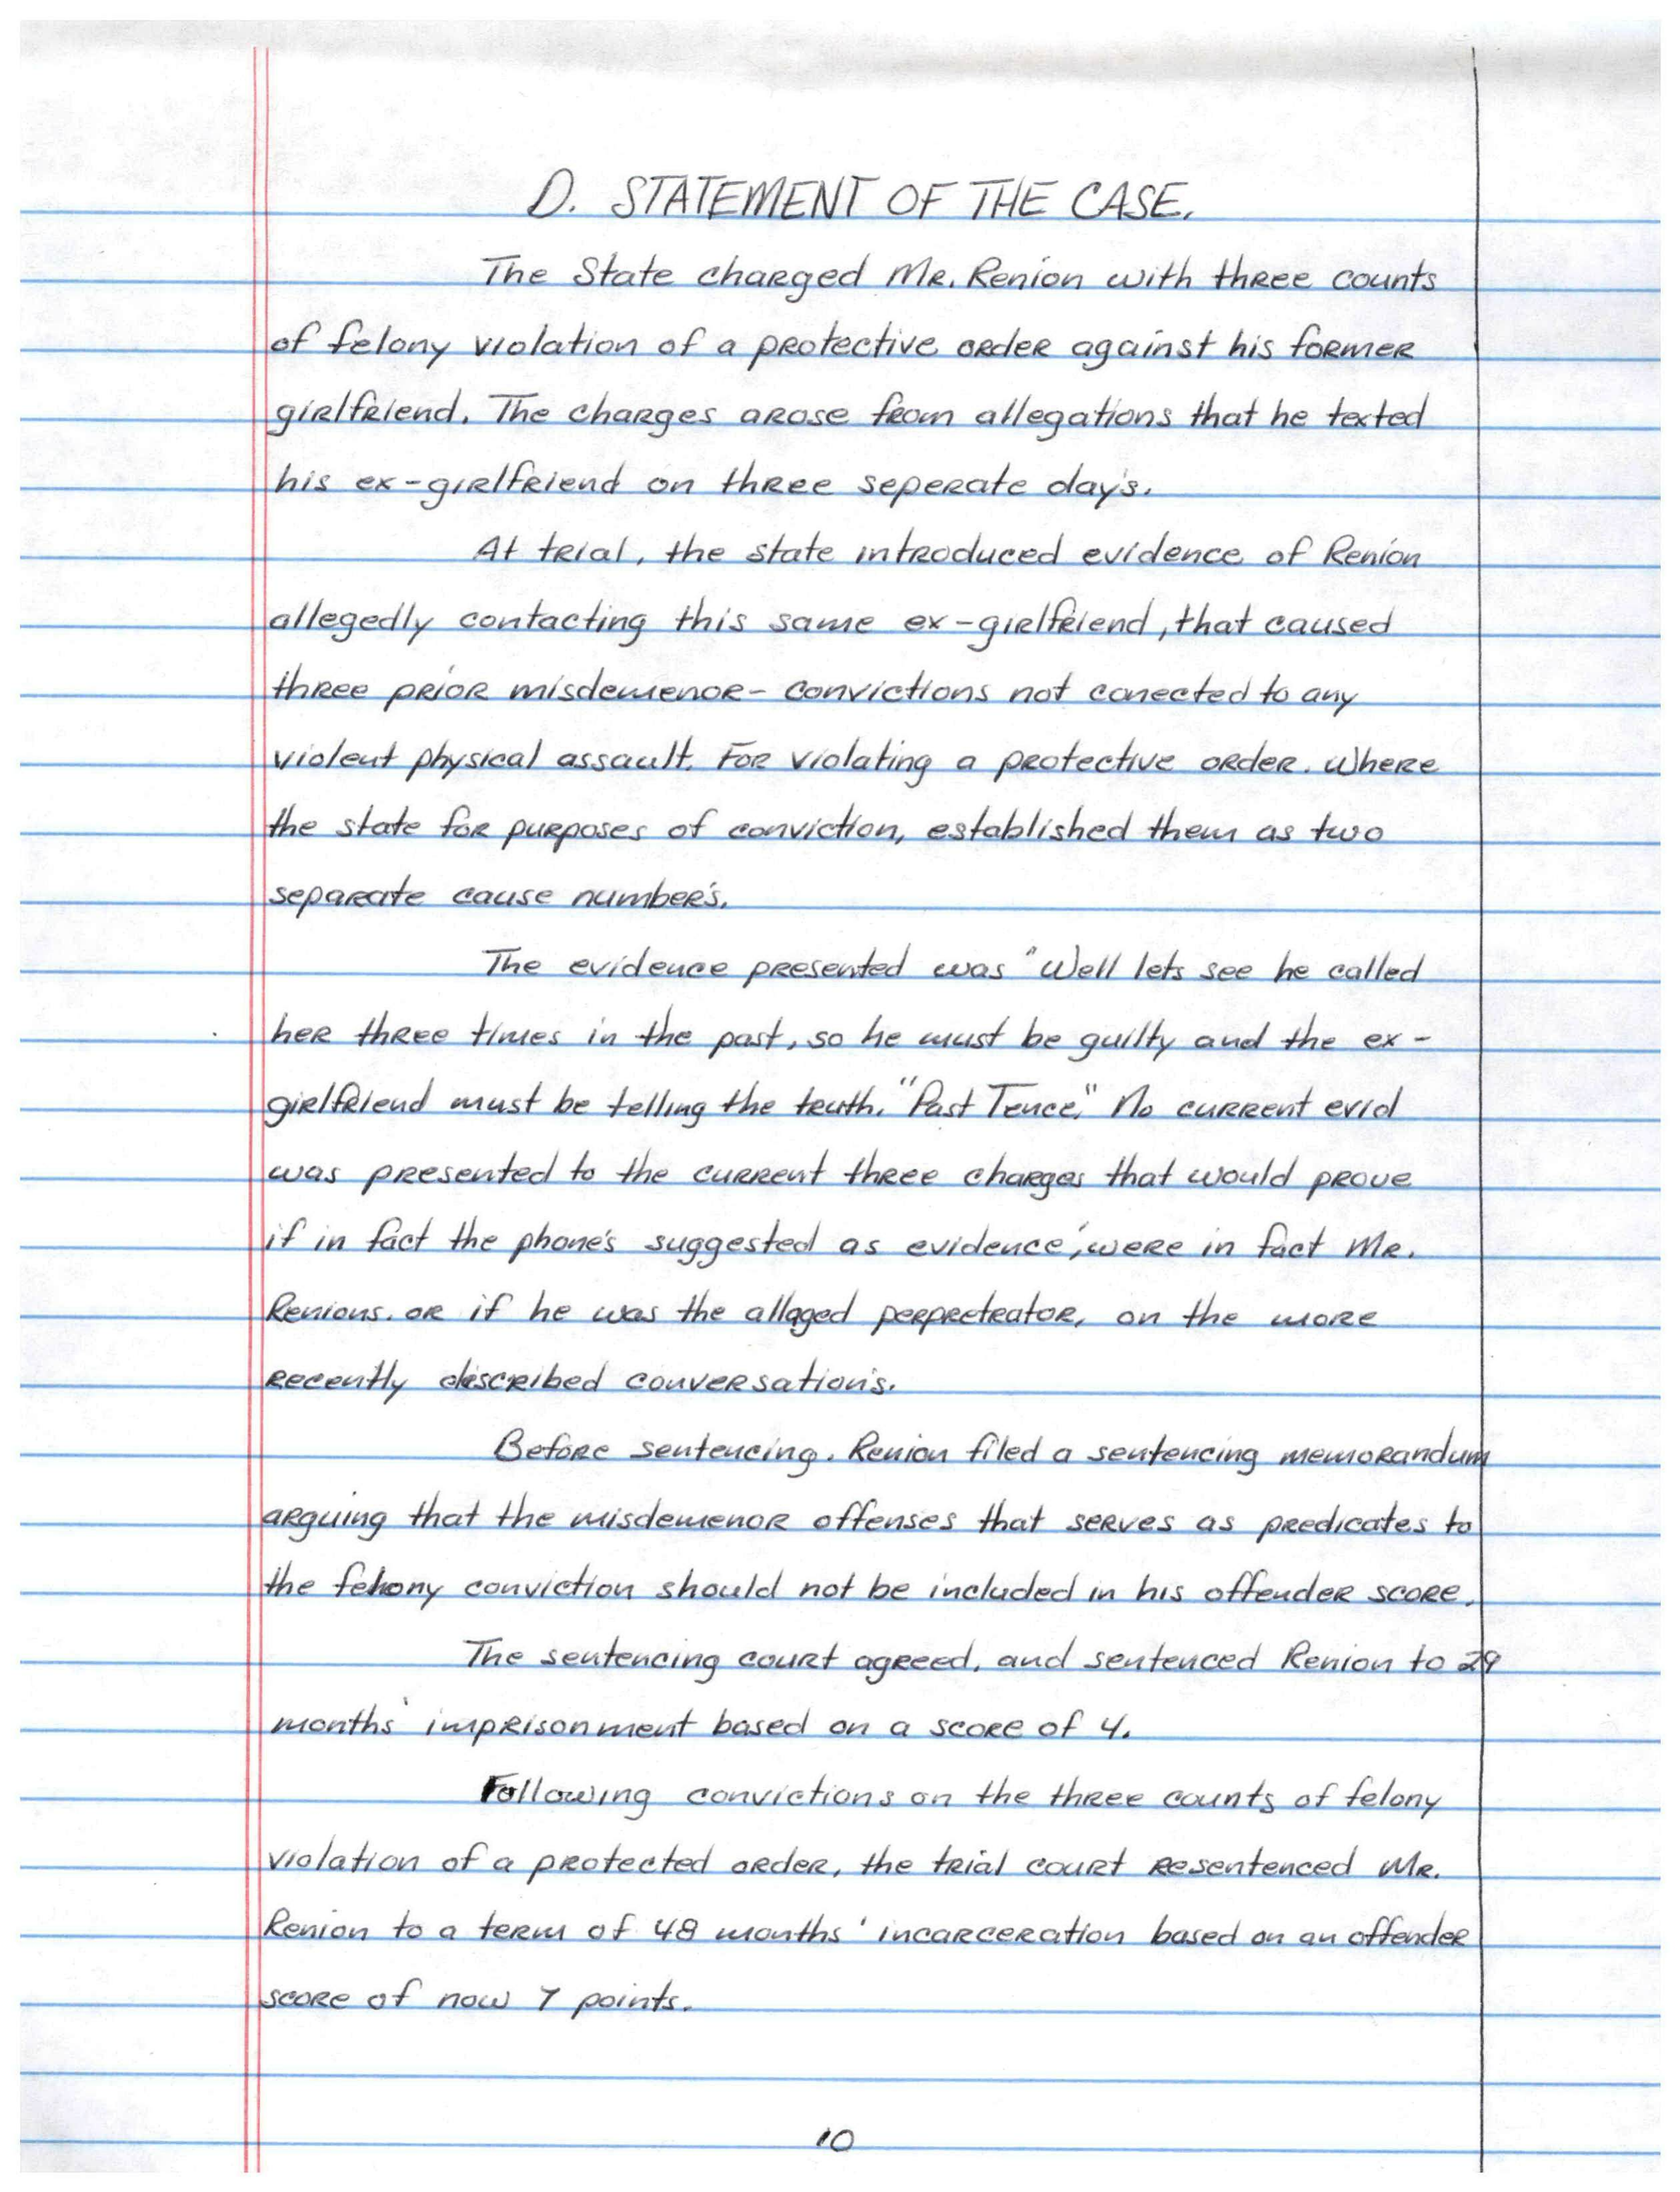 D. STATEMENT OF THE CASE.
The State charged Mr. Renion with three counts
of felony violation of a protective order against his former
girlfriend. The charges arose from allegations that he texted
his ex-girlfriend on three seperate day's.
At trial, the state introduced evidence of Renion
allegedly contacting this same ex-girlfriend, that caused
three prior misdemenor- convictions not conected to any
violent physical assault. For violating a protective order. Where
the state for purposes of conviction, established them as two
separate cause number's.
The evidence presented was "Well lets see he called
her three times in the past, so he must be guilty and the ex-
girlfriend must be telling the truth." "Past Tence." No current evid
was presented to the current three charges that would prove
if in fact the phone's suggested as evidence', were in fact Mr.
Renions. or if he was the allaged perpretrator, on the more
recently described conversation's.
Before sentencing. Renion filed a sentencing memorandum
arguing that the misdemenor offenses that serves as predicates to
the felony conviction should not be included in his offender score.
The sentencing court agreed, and sentenced Renion to 29
months' imprisonment based on a score of 4.
Following convictions on the three counts of felony
violation of a protected order, the trial court resentenced Mr.
Renion to a term of 48 months' incarceration based on an offender
score of now 7 points.
10